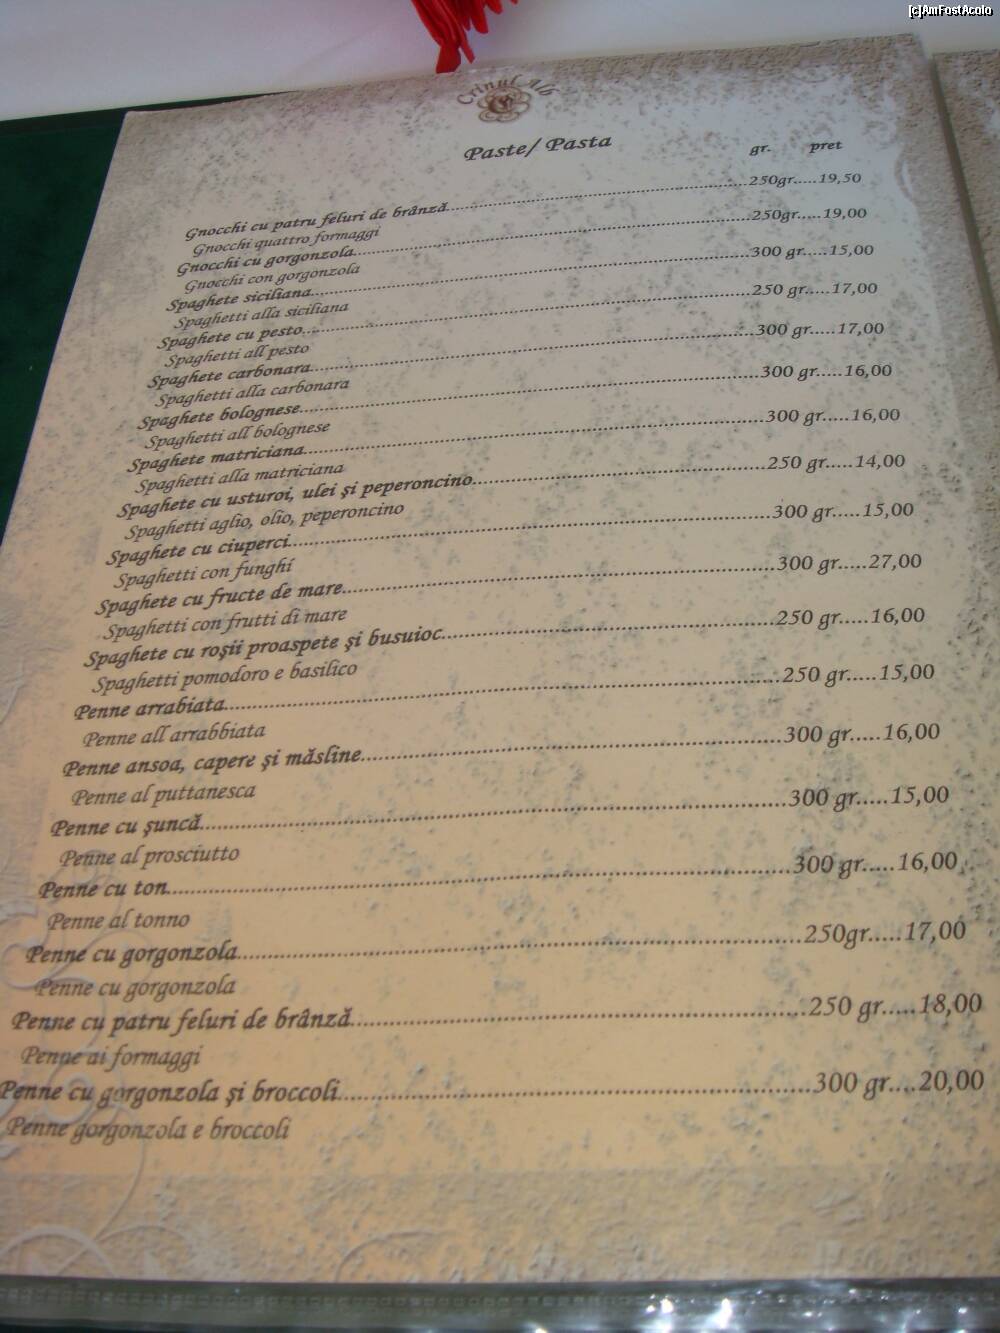 [c]AmFostAcolo
Crinul Alb
Paste/ Pasta gr. pret
Gnocchi cu patru feluri de brânză....................250gr.....19,50
Gnocchi quattro formaggi
Gnocchi cu gorgonzola....................250gr.....19,00
Gnocchi con gorgonzola
Spaghete siciliana....................300 gr.....15,00
Spaghetti alla siciliana
Spaghete cu pesto....................250 gr.....17,00
Spaghetti all pesto
Spaghete carbonara....................300 gr.....17,00
Spaghetti alla carbonara
Spaghete bolognese....................300 gr.....16,00
Spaghetti all bolognese
Spaghete matriciana....................300 gr.....16,00
Spaghetti alla matriciana
Spaghete cu usturoi, ulei şi peperoncino....................250 gr.....14,00
Spaghetti aglio, olio, peperoncino
Spaghete cu ciuperci....................300 gr.....15,00
Spaghetti con funghi
Spaghete cu fructe de mare....................300 gr.....27,00
Spaghetti con frutti di mare
Spaghete cu roşii proaspete şi busuioc....................250 gr.....16,00
Spaghetti pomodoro e basilico
Penne arrabiata....................250 gr.....15,00
Penne all arrabbiata
Penne ansoa, capere şi măsline....................300 gr.....16,00
Penne al puttanesca
Penne cu şuncă....................300 gr.....15,00
Penne al prosciutto
Penne cu ton....................300 gr.....16,00
Penne al tonno
Penne cu gorgonzola....................250gr.....17,00
Penne cu gorgonzola
Penne cu patru feluri de brânză....................250 gr.....18,00
Penne ai formaggi
Penne cu gorgonzola şi broccoli....................300 gr....20,00
Penne gorgonzola e broccoli